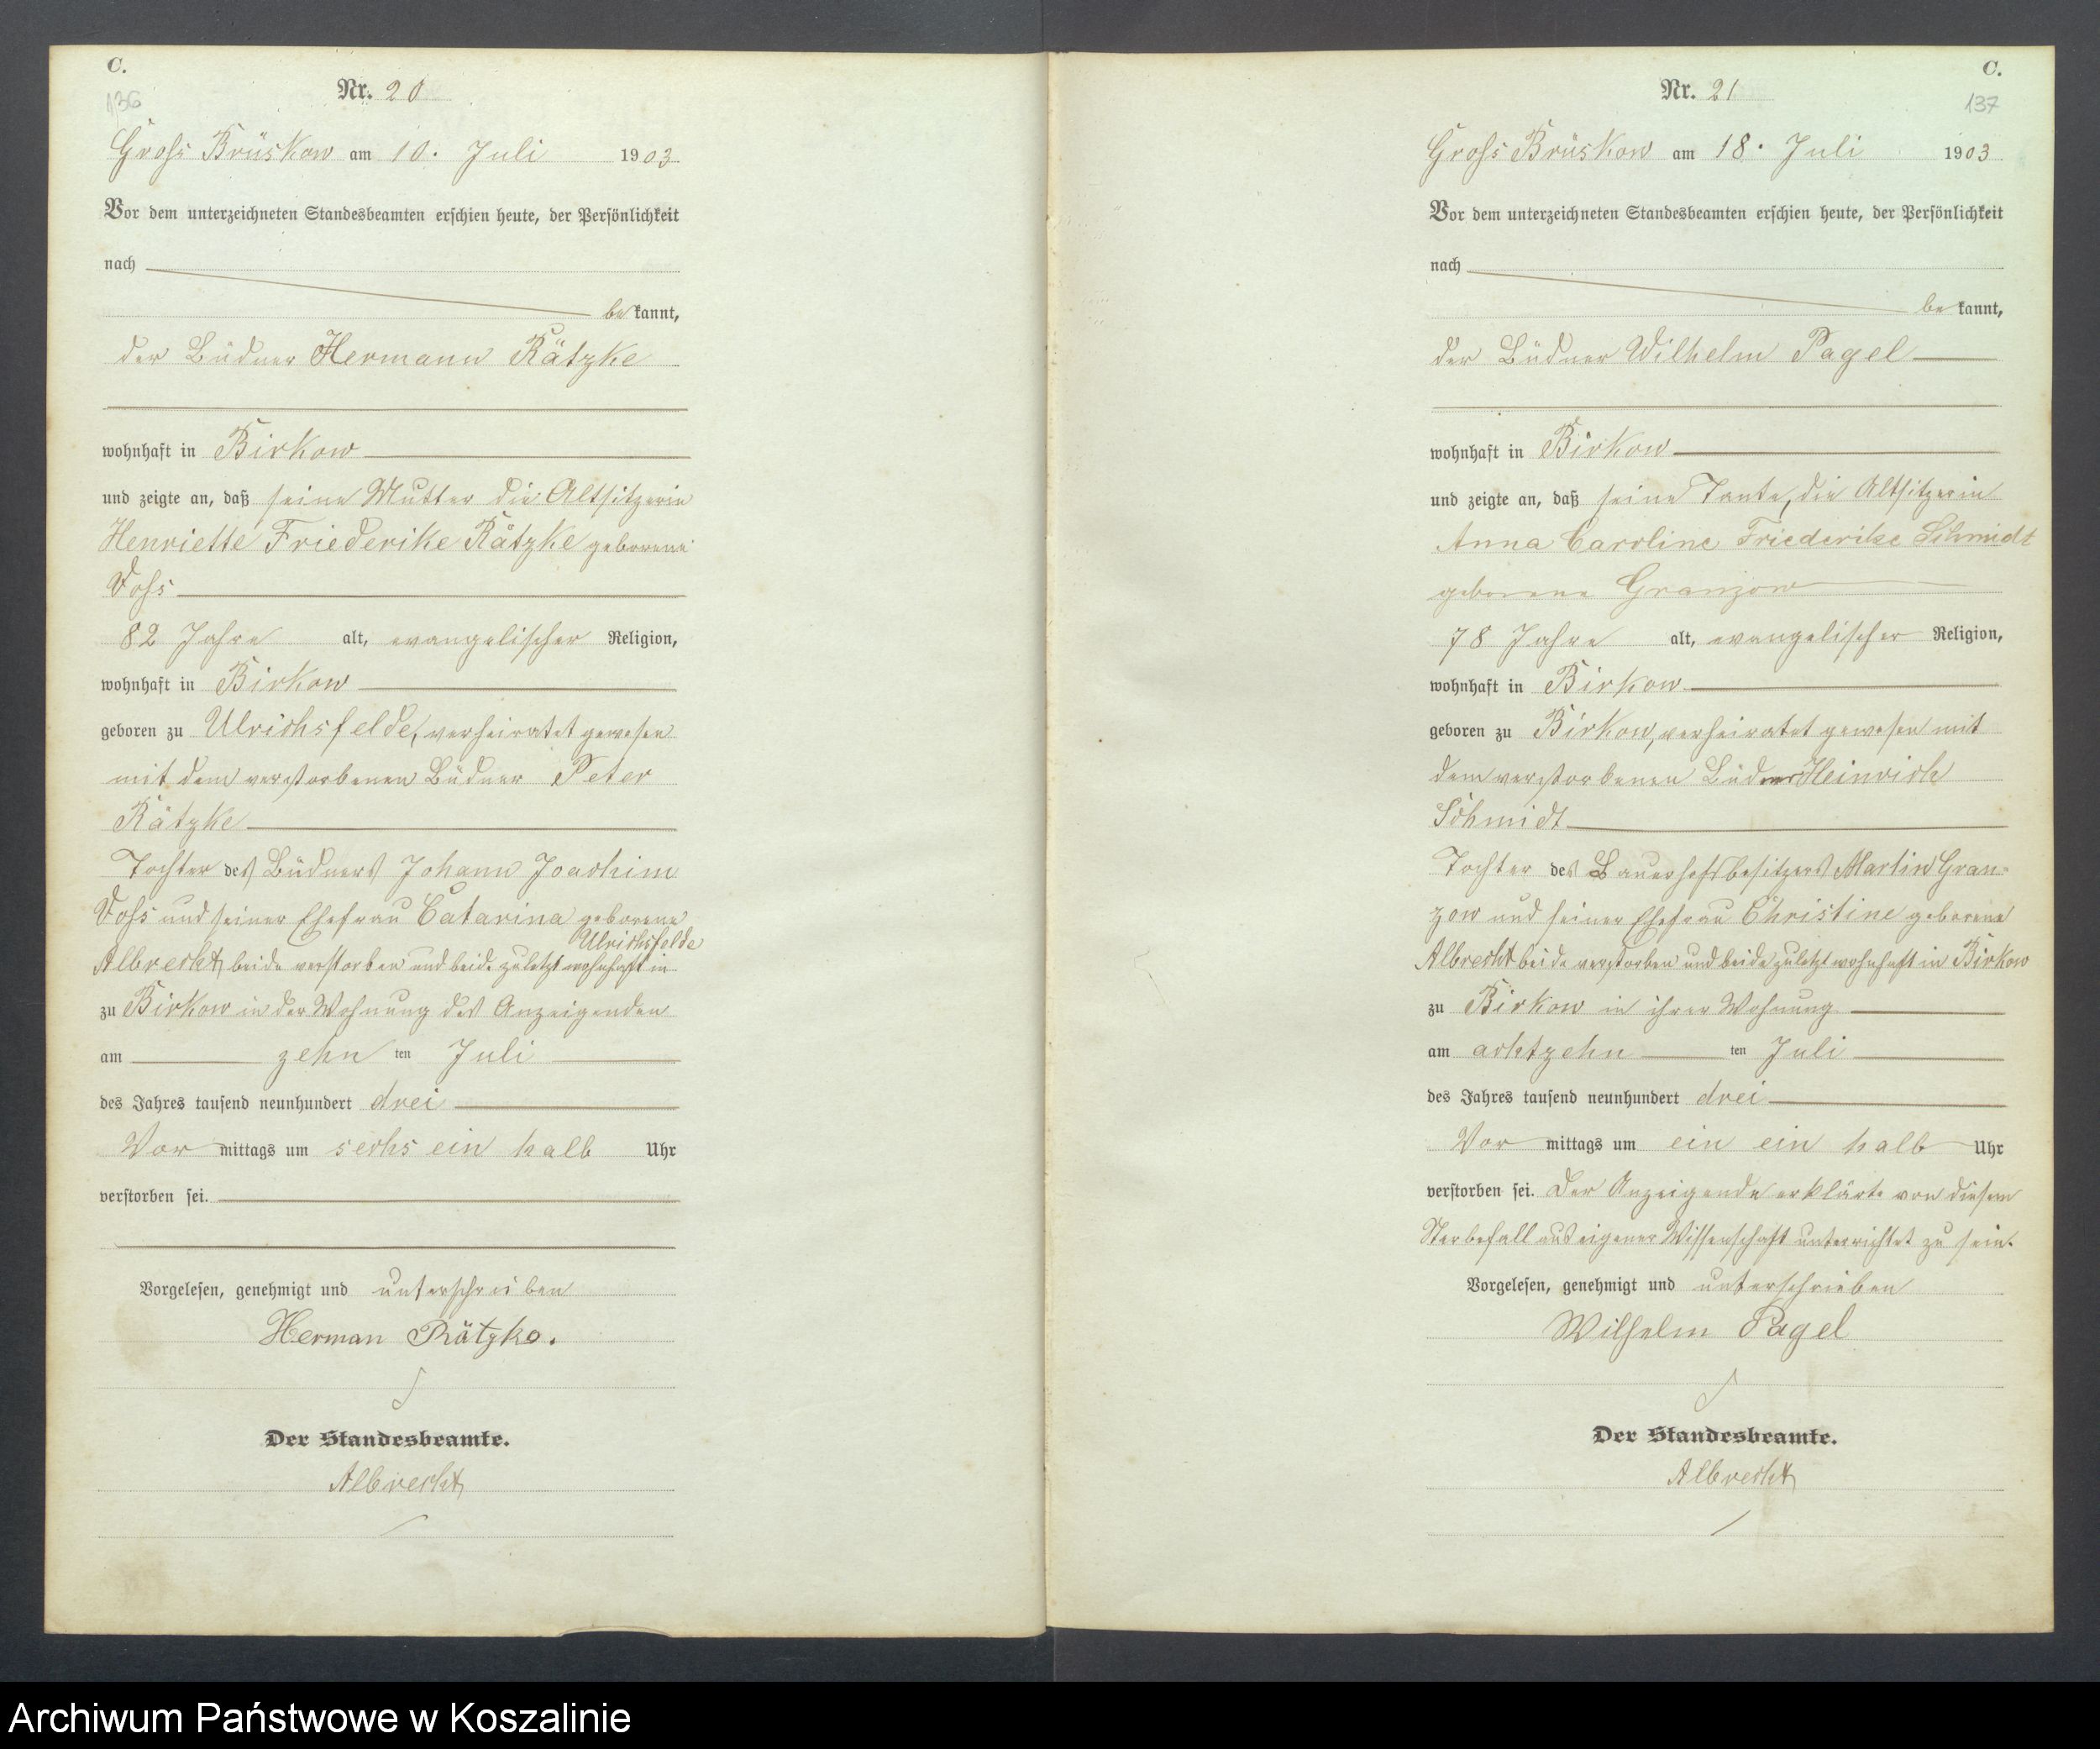 C.
136
Nr. 20
Gross Brüskow am 10. Juli 1903
Vor dem unterzeichneten Standesbeamten erschien heute, der Persönlichkeit
nach
be kannt,
der Büdner Hermann Rätzke
wohnhaft in Birkow
und zeigte an, daß seine Mutter die Altsitzerin
Henriette Friederike Rätzke geborene
Voss
82 Jahre alt, evangelischer Religion,
wohnhaft in Birkow
geboren zu Ulrichsfelde, verheiratet gewesen
mit dem verstorbenen Büdner Peter
Rätzke
Tochter des Büdners Johann Joachim
Voss und seiner Ehefrau Catarina geborene
Ulrichsfelde
Albrecht, beide verstorben und beide zuletzt wohnhaft in
zu Birkow in der Wohnung des Anzeigenden
am zehn ten Juli
des Jahres tausend neunhundert drei
Vor mittags um sechs ein halb Uhr
verstorben sei.
Vorgelesen, genehmigt und unterschrieben
Herman Rätzke.
Der Standesbeamte.
Albrecht
C.
137
Nr. 21
Gross Brüskow am 18. Juli 1903
Vor dem unterzeichneten Standesbeamten erschien heute, der Persönlichkeit
nach
be kannt,
der Büdner Wilhelm Pagel
wohnhaft in Birkow
und zeigte an, daß seine Tante, die Altsitzerin
Anna Caroline Friederike Schmidt
geborene Granzow
78 Jahre alt, evangelischer Religion,
wohnhaft in Birkow
geboren zu Birkow, verheiratet gewesen mit
dem verstorbenen Büdner Heinrich
Schmidt
Tochter des Bauerhofsbesitzers Martin Gran-
zow und seiner Ehefrau Christine geborene
Albrecht beide verstorben und beide zuletzt wohnhaft in Birkow
zu Birkow in ihrer Wohnung
am achtzehn ten Juli
des Jahres tausend neunhundert drei
Vor mittags um ein ein halb Uhr
verstorben sei. Der Anzeigende erklärte von diesem
Sterbefall aus eigener Wissenschaft unterrichtet zu sein.
Vorgelesen, genehmigt und unterschrieben
Wilhelm Pagel
Der Standesbeamte.
Albrecht
Archiwum Państwowe w Koszalinie